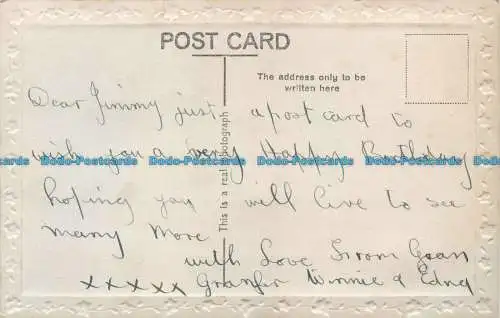 POST CARD
The address only to be
written here
This is a real photograph
Dear Jimmy just a post card to
wish you a very Happy Birthday
hoping you will live to see
many more
with Love From Gran
xxxxx Granfer Winnie & Edna
Dodo-Postcards Dodo-Postcards Dodo-Postcards Dodo-Postcards